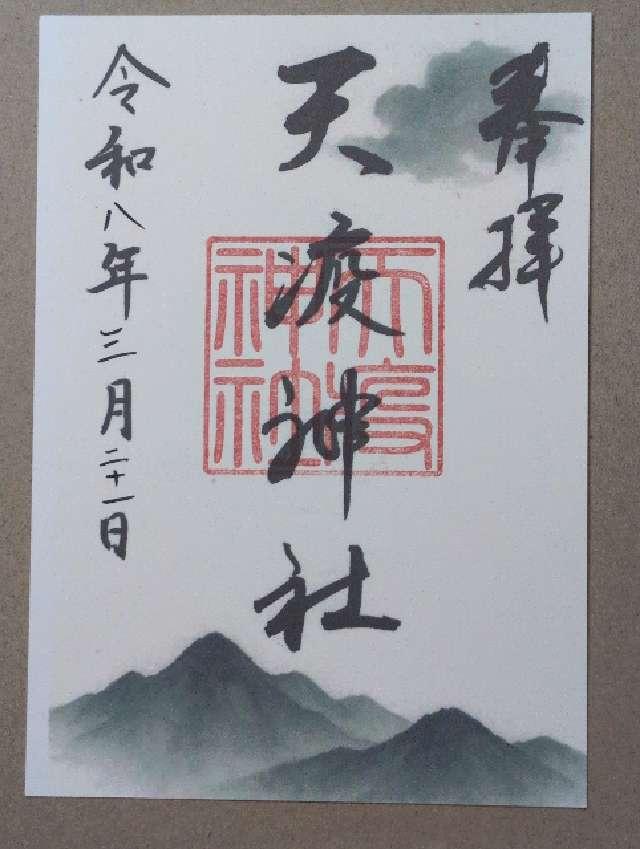 奉拝
天疫神社
令和八年三月二十一日